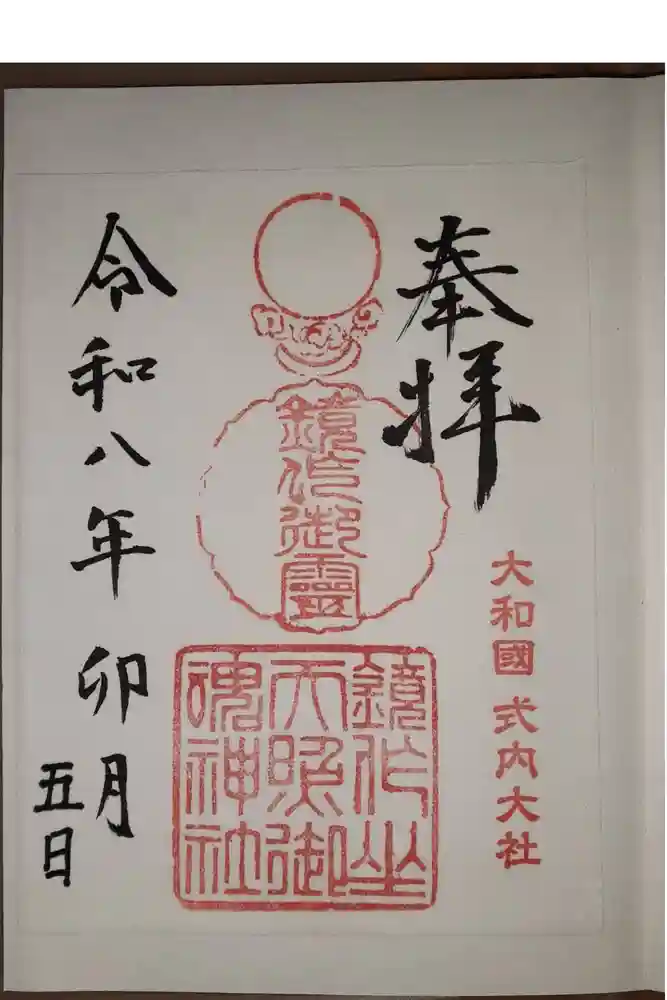 奉拝
大和國 式内大社
鏡作御霊
鏡作坐
天照御
魂神社
令和八年 卯月
五日